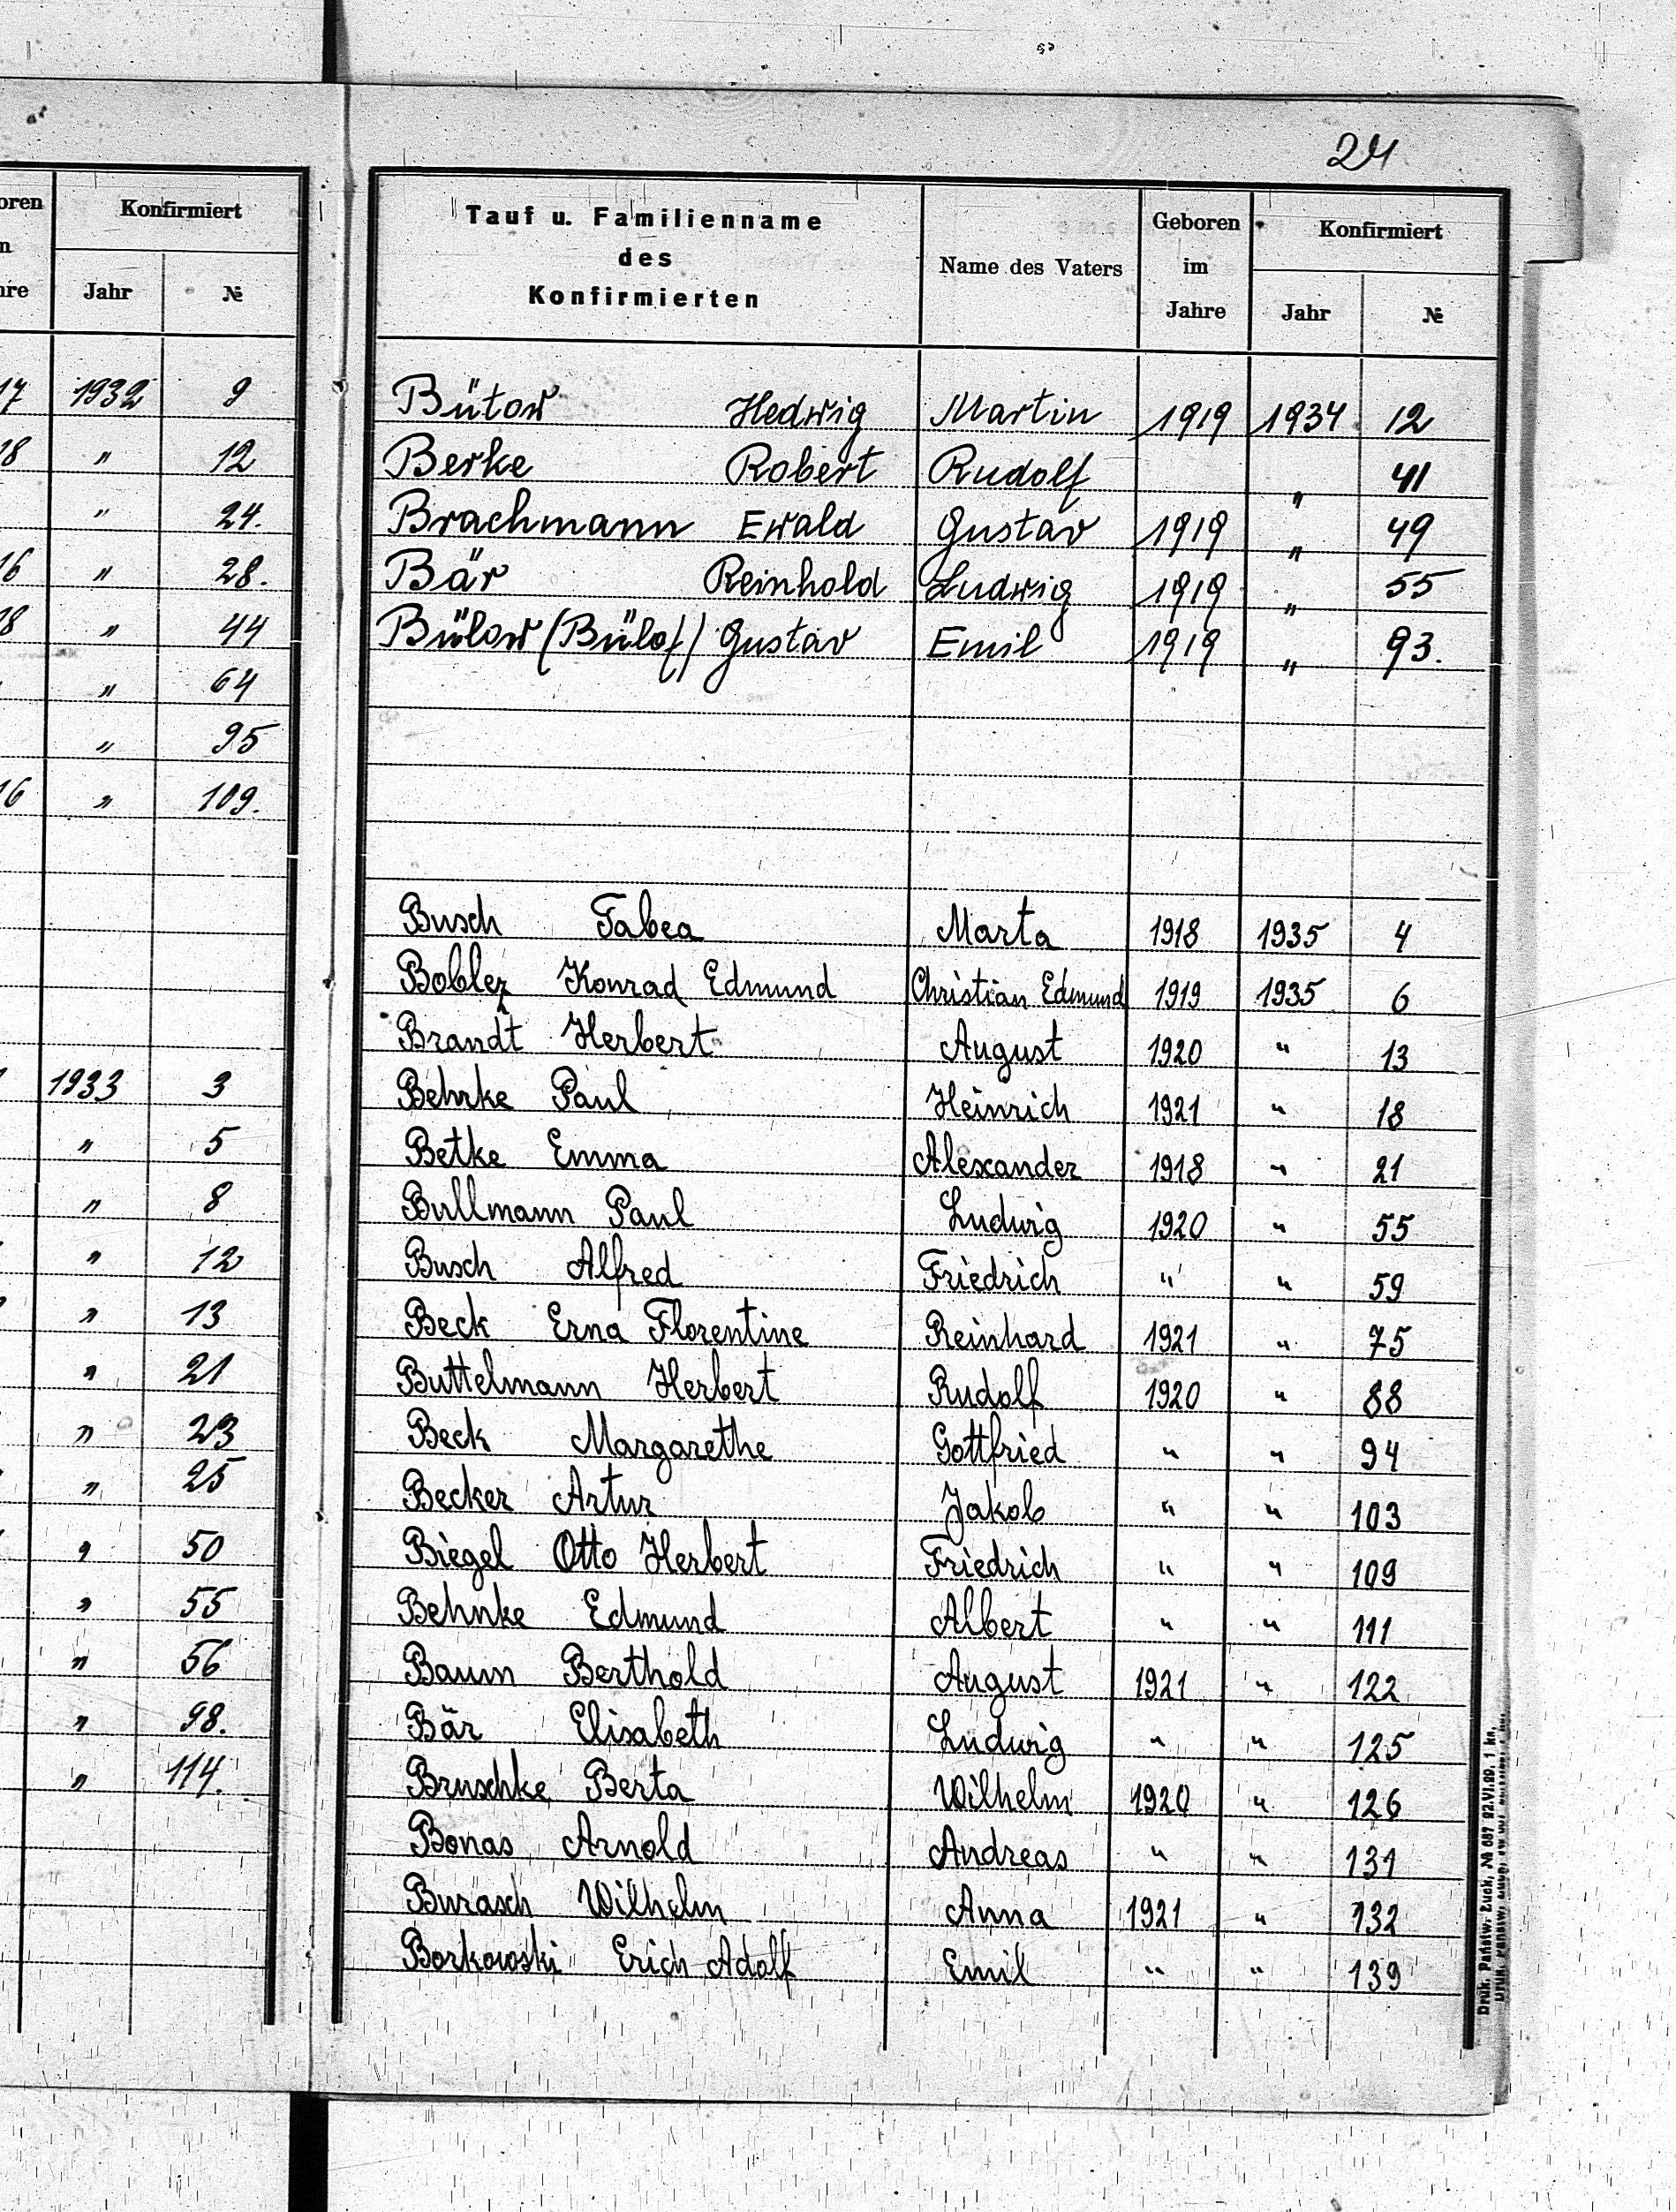 24
oren Konfirmiert
n
hre Jahr №
17 1932 9
18 " 12
" 24.
16 " 28.
18 " 44
" 64
" 95
16 " 109.
1933 3
" 5
" 8
" 12
" 13
" 21
" 23
" 25
" 50
" 55
" 56
" 98.
" 114.
Tauf u. Familienname des Konfirmierten Name des Vaters Geboren im Jahre Konfirmiert Jahr №
Bütow Hedwig Martin 1919 1934 12
Berke Robert Rudolf " 41
Brachmann Ewald Gustav 1919 " 49
Bär Reinhold Ludwig 1919 " 55
Bülow (Bülof) Gustav Emil 1919 " 93.
Busch Tabea Marta 1918 1935 4
Konrad Edmund Christian Edmund 1919 1935 6
Brandt Herbert August 1920 " 13
Behrke Paul Heinrich 1921 " 18
Betke Emma Alexander 1918 " 21
Bullmann Paul Ludwig 1920 " 55
Busch Alfred Friedrich " " 59
Beck Erna Florentine Reinhard 1921 " 75
Buttelmann Herbert Rudolf 1920 " 88
Beck Margarethe Gottfried " " 94
Becker Artur Jakob " " 103
Biegel Otto Herbert Friedrich " " 109
Behnke Edmund Albert " " 111
Baum Berthold August 1921 " 122
Bär Elisabeth Ludwig " " 125
Bruschke Berta Wilhelm 1920 " 126
Bonas Arnold Andreas " " 131
Burasch Wilhelm Anna 1921 " 132
Borkowski Erich Adolf Emil " " 139
Druk. Państw. Łuck, № 687 22.VI.29. 1 kn.